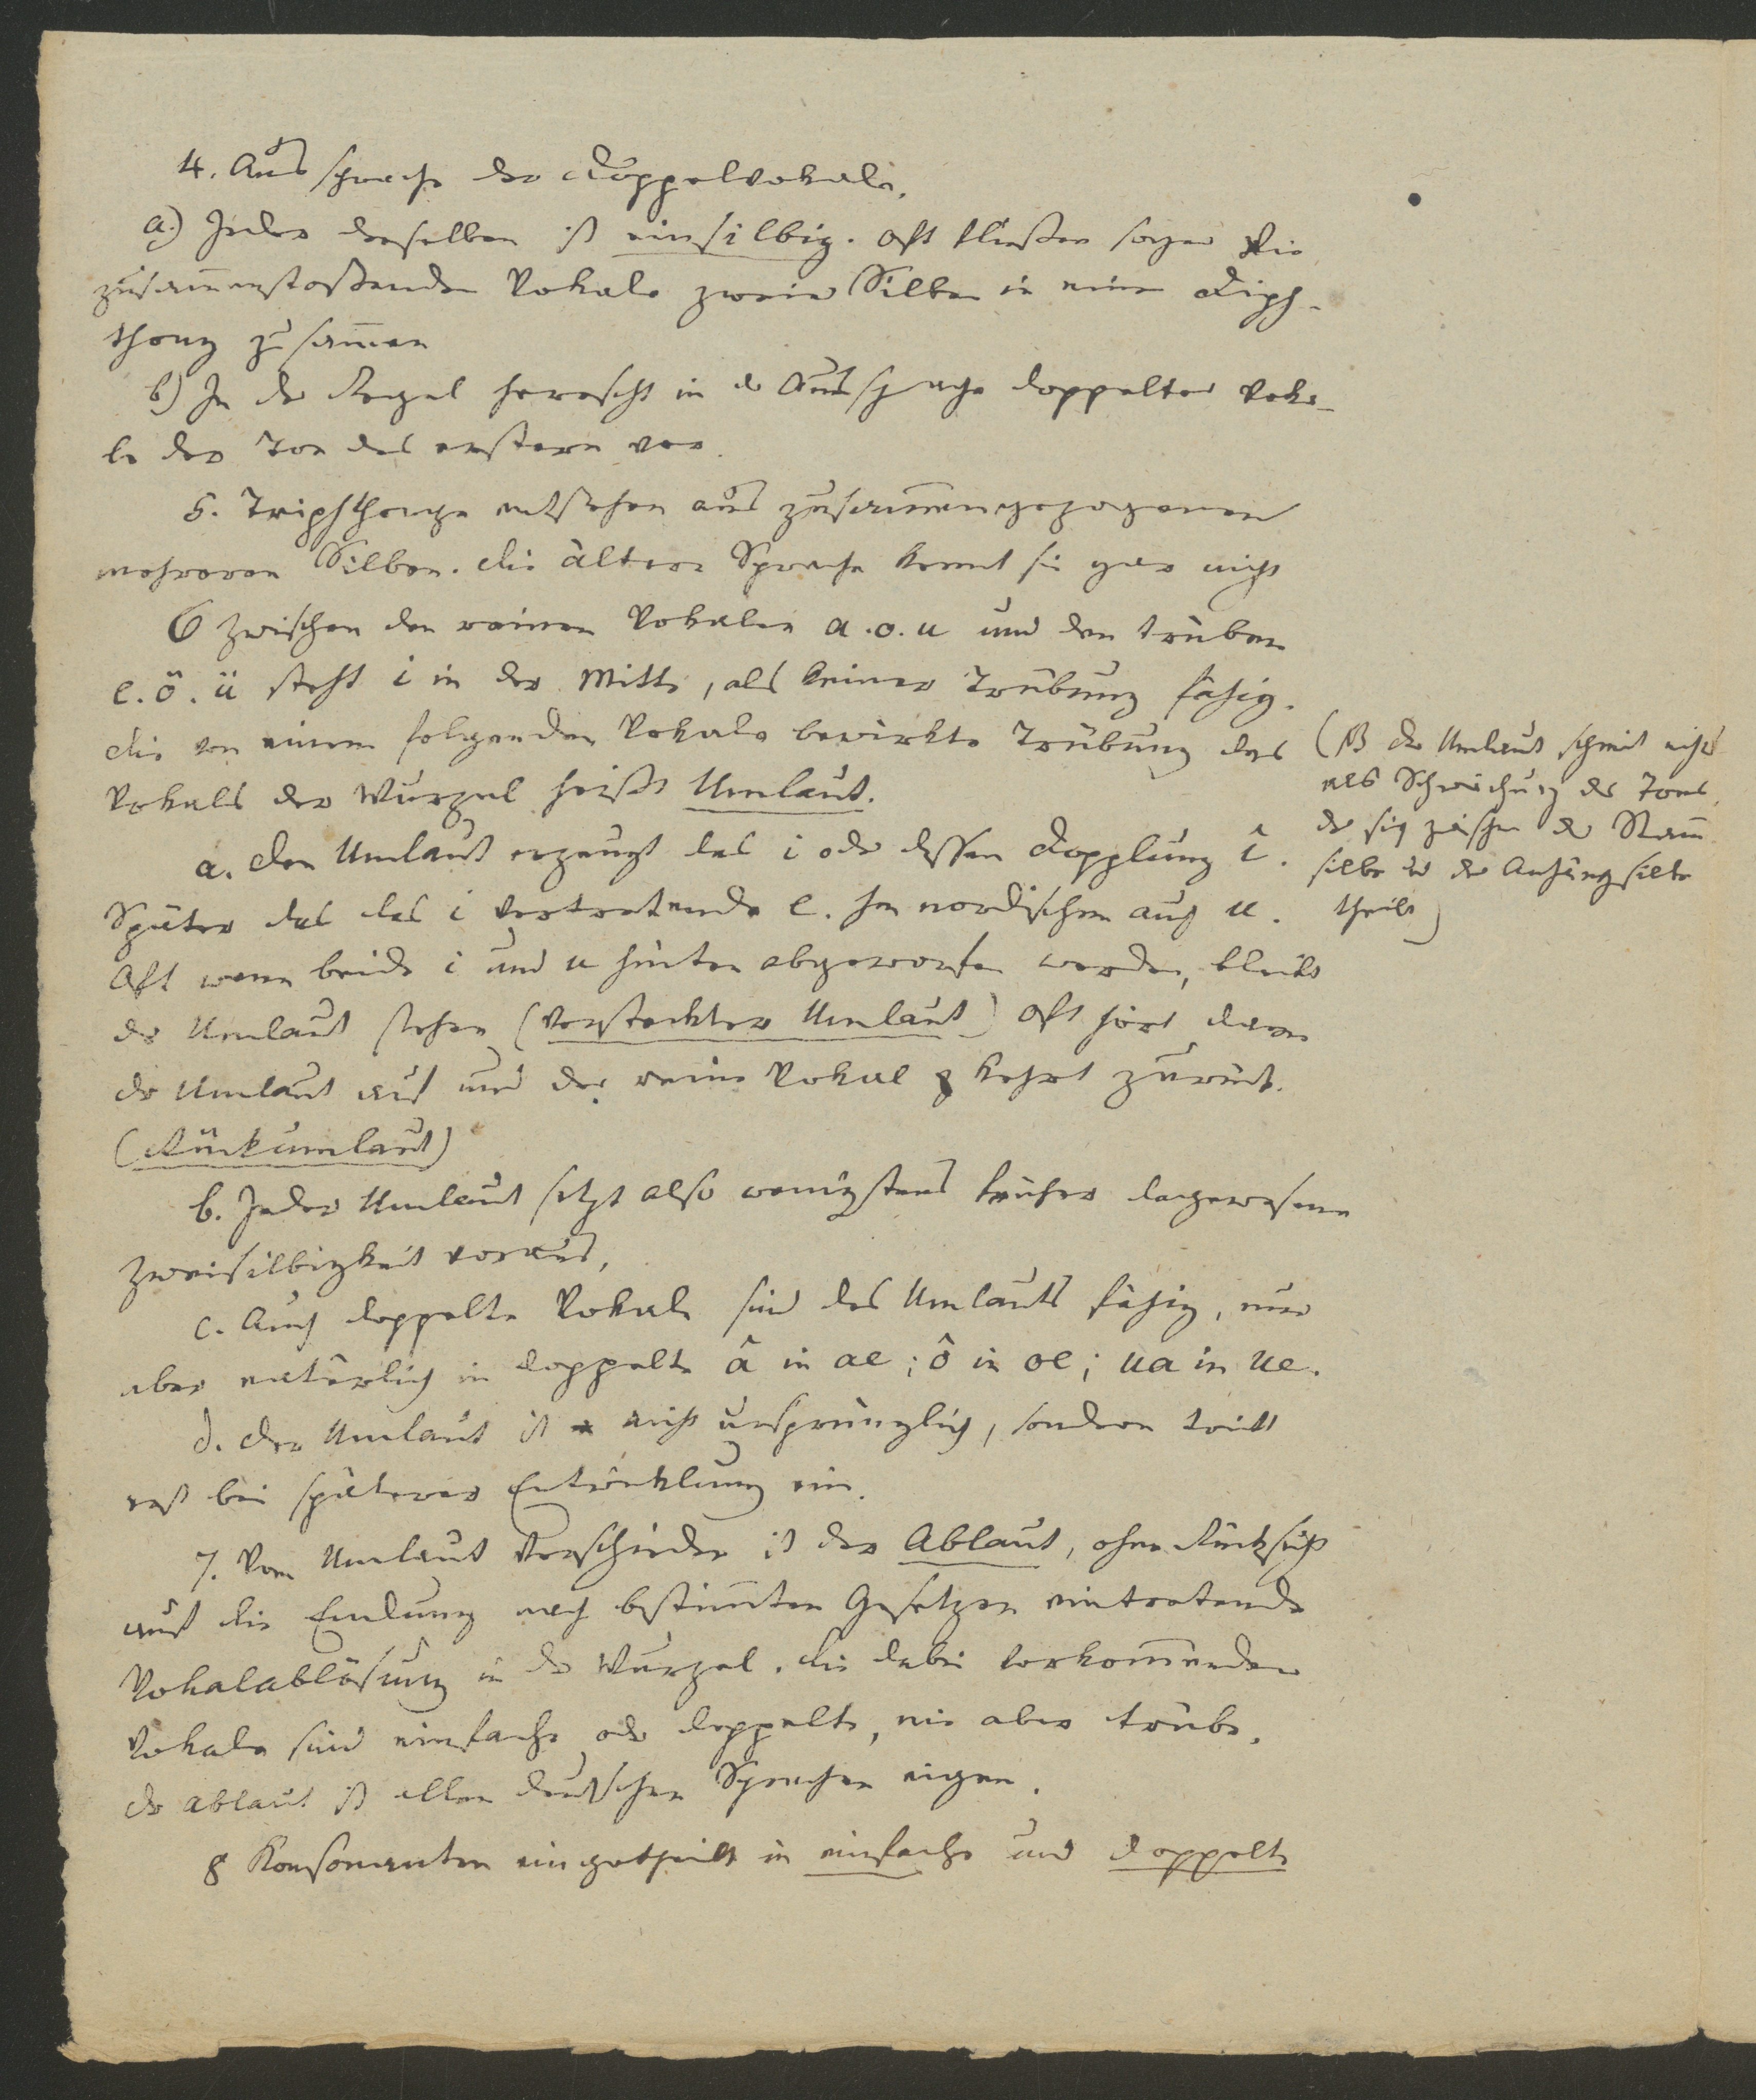 4. Aussprache der Doppelvokale.
a.) Jeder derselben ist einsilbig. Oft fließen sogar die
zusam̅enstoßenden Vokale zweier Silben in einen Diph-
thong zusam̅en
b) In der Regel herrscht in der Aussprache doppelter Voka-
le der Ton des erstern vor.
5. Triphthonge entstehen aus zusam̅engezogenen
mehreren Silben. die ältere Sprache kennt sie gar nicht
6 Zwischen den reinen Vokalen a. o. u und den trüben
e. ö. ü steht i in der Mitte, als keiner Trübung fähig.
die von einem folgenden Vokale bewirkte Trübung des
Vokals der Wurzel heißt Umlaut.
a. den Umlaut erzeugt das i oder dessen Dopplung î.
Später das das i vertretende e. Im nordischen auch u.
Oft wenn beide i und u hinten abgeworfen werden, bleibt
der Umlaut stehen (versteckter Umlaut) Oft hört dann
der Umlaut auf und der reine Vokal kehrt zurück.
(Rückumlaut)
b. Jeder Umlaut setzt also wenigstens früher dagewesene
Zweisilbigkeit voraus,
c. Auch doppelte Vokale sind des Umlauts fähig, nur
aber natürlich in doppelte â in ae; ô in oe; ua in ue.
d. der Umlaut ist nicht ursprünglich, sondern tritt
erst bei späterer Entwicklung ein.
7. Vom Umlaut verschieden ist der Ablaut, ohne Rücksicht
auf die Endung nach bestim̅ten Gesetzen eintretende
Vokalablösung in der Wurzel. die dabei vorkom̅enden
Vokale sind einfache oder doppelte, nie aber trübe.
der ablaut ist allen deutschen Sprachen eigen.
8 Konsonanten eingetheilt in einfache und doppelte
(NB der Umlaut scheint nichts
als Schwächung des Tons,
der sich zwischen der Stam̅
silbe und der Anhängsilbe
theilt)